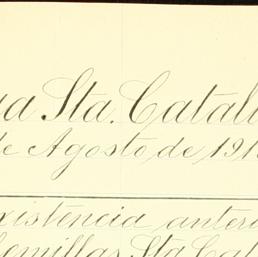 ua Sta. Catal
de Agosto de 191
xistencia anteri
Semillas Sta Cat